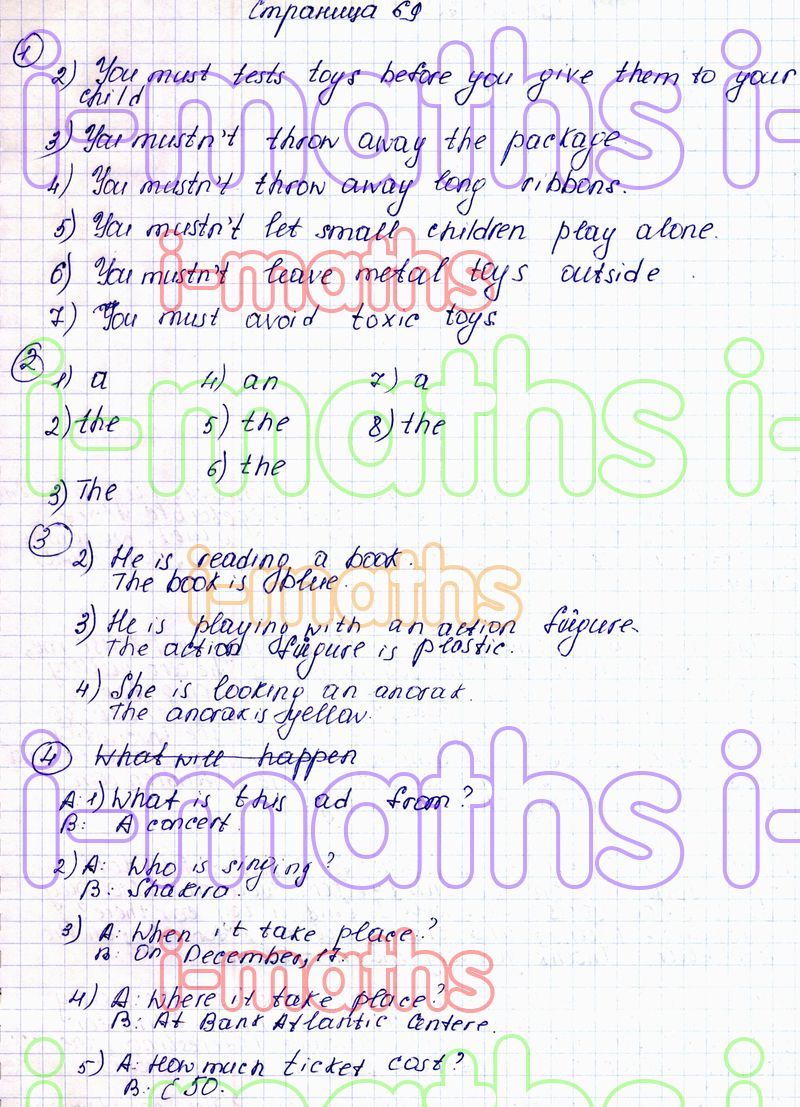 Страница 69
1
2) You must tests toys before you give them to your
child
3) You mustn't throw away the package.
4) You mustn't throw away long ribbons.
5) You mustn't let small children play alone.
6) You mustn't leave metal toys outside.
7) You must avoid toxic toys
2
1) a 4) an 7) a
2) the 5) the 8) the
6) the
3) The
3
2) He is reading a book.
The book is blue.
3) He is playing with an action fuigure.
The action fuigure is plastic.
4) She is looking an anorak.
The anorak is yellow.
4 What will happen
A: 1) What is this ad from?
B: A concert.
2) A: Who is singing?
B: Shakira.
3) A: When it take place?
B: On December, 17.
4) A: Where it take place?
B: At Bank Atlantic Centere.
5) A: How much ticket cost?
B: £ 50.
i-maths i-maths
i-maths
i-maths i-maths
i-maths
i-maths i-maths
i-maths
i-maths i-maths